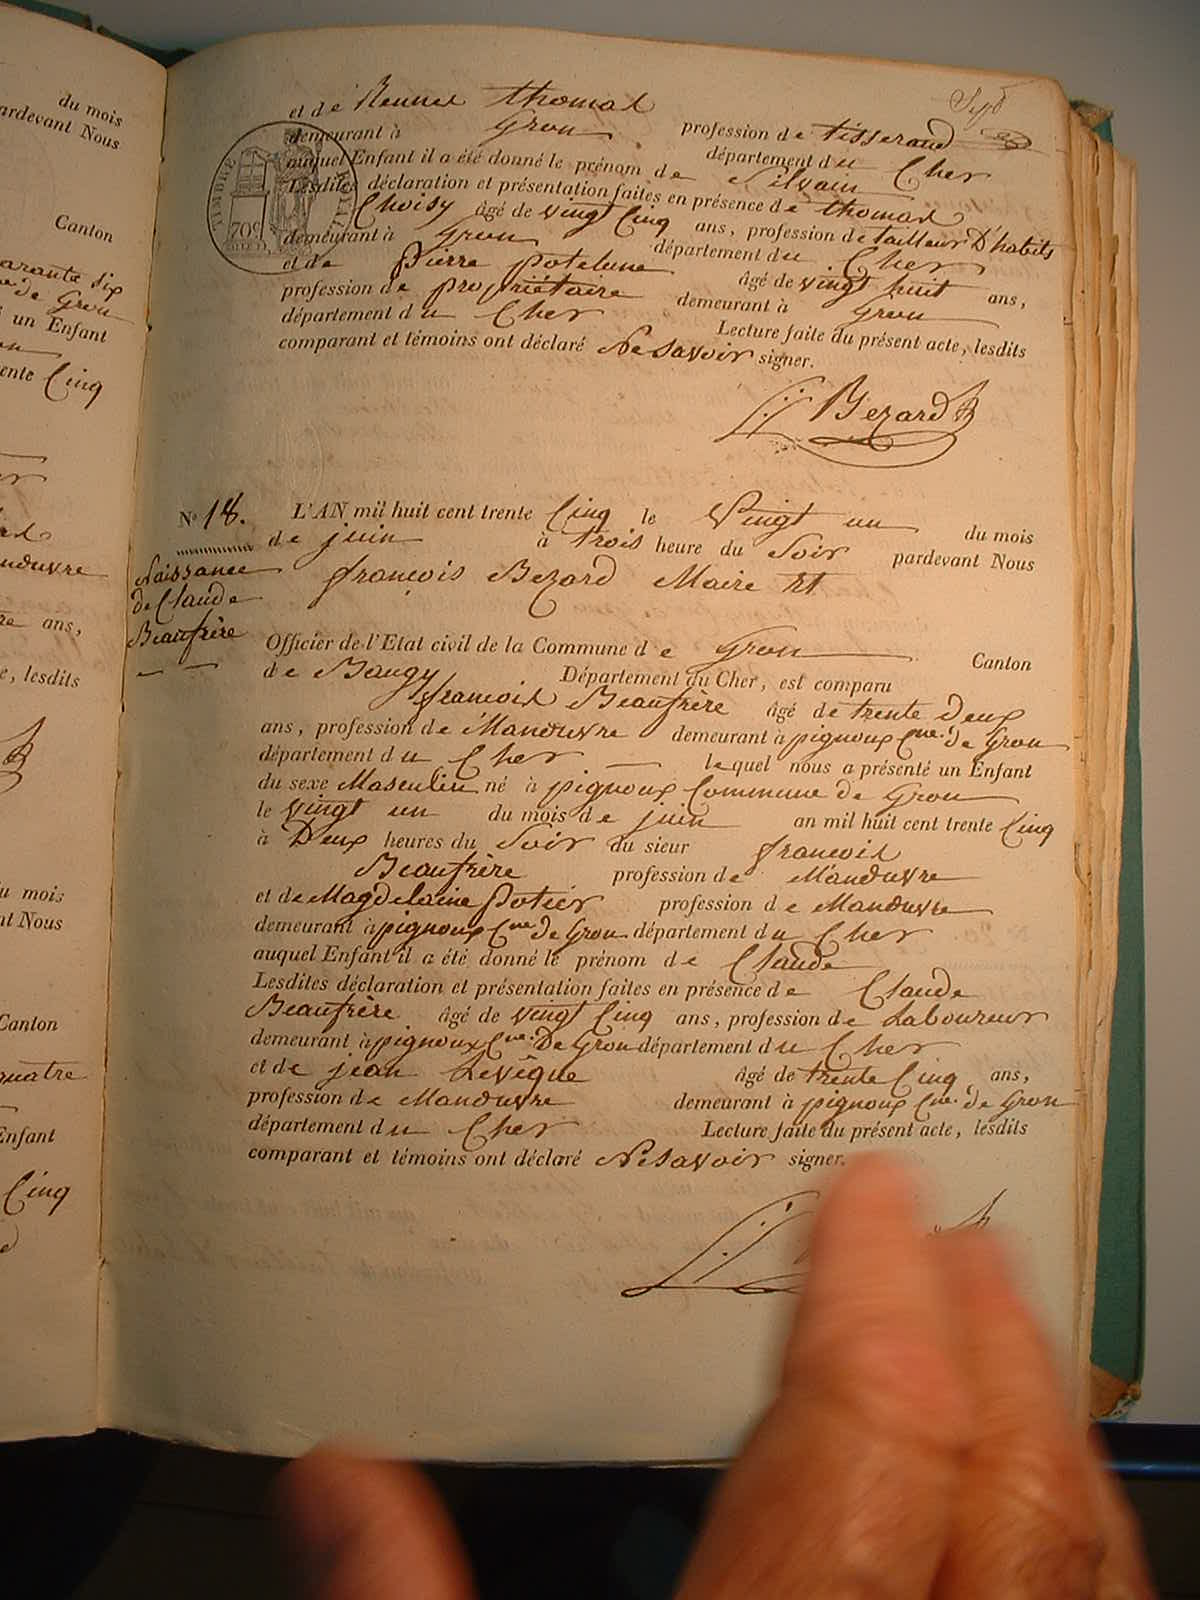 du mois
pardevant Nous
Canton
quarante Six
de Gron
un Enfant
trente Cinq
Manœuvre
ans,
, lesdits
du mois
Nous
Canton
quatre
Enfant
Cinq
et de Rennee thomas
demeurant à Gron profession de tisserand
département du Cher
auquel Enfant il a été donné le prénom de Silvain
Lesdites déclaration et présentation faites en présence de thomas
Choisy âgé de vingt Cinq ans, profession de tailleur D'habits
demeurant à Gron département du Cher
et de Pierre potelune âgé de vingt huit ans,
profession de propriétaire demeurant à Gron
département du Cher Lecture faite du présent acte, lesdits
comparant et témoins ont déclaré Ne Savoir signer.
Bezard
TIMBRE ROYAL
70c
No 18. L'AN mil huit cent trente Cinq le Vingt un du mois
de juin à trois heure du Soir pardevant Nous
françois Bezard Maire Et
Naissance
de Claude
Beaufrère
Officier de l'Etat civil de la Commune de Gron Canton
de Baugy Département du Cher, est comparu
françois Beaufrère âgé de trente Deux
ans, profession de Manœuvre demeurant à pignoux Cne. de Gron
département du Cher lequel nous a présenté un Enfant
du sexe Masculin né à pignoux Commune de Gron
le vingt un du mois de juin an mil huit cent trente Cinq
à Deux heures du Soir du sieur françois
Beaufrère profession de Manœuvre
et de Magdelaine Potier profession de Manœuvre
demeurant à pignoux Cne de Gron département du Cher
auquel Enfant il a été donné le prénom de Claude
Lesdites déclaration et présentation faites en présence de Claude
Beaufrère âgé de vingt Cinq ans, profession de Laboureur
demeurant à pignoux Cne. De Gron département du Cher
et de jean Levêque âgé de trente Cinq ans,
profession de Manœuvre demeurant à pignoux Cne. de Gron
département du Cher Lecture faite du présent acte, lesdits
comparant et témoins ont déclaré Ne Savoir signer.